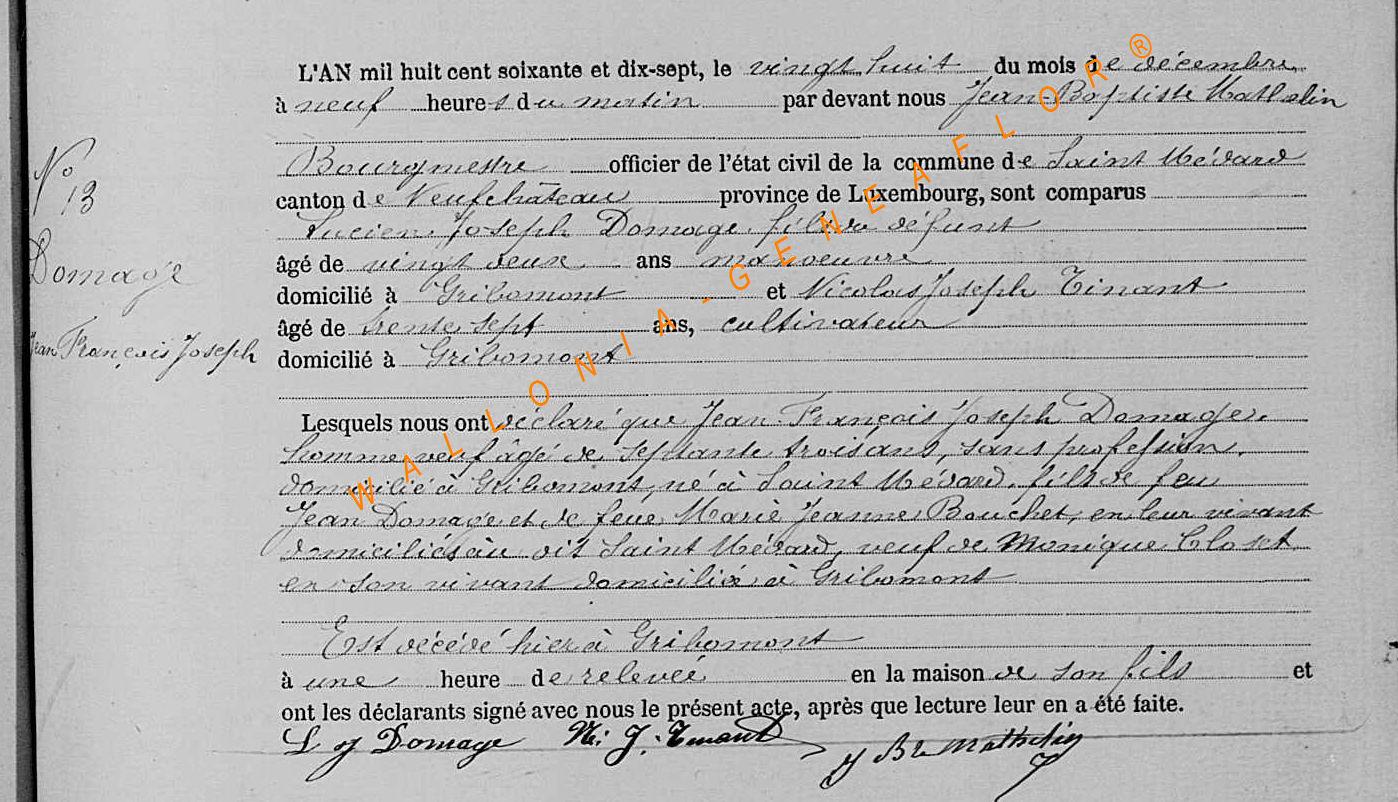 L'AN mil huit cent soixante et dix-sept, le vingt huit du mois de décembre
à neuf heures du matin par devant nous Jean-Baptiste Mathelin
Bourgmestre officier de l'état civil de la commune de Saint Médard
N° 13
canton de Neufchâteau province de Luxembourg, sont comparus
Lucien Joseph Domage fils du défunt
Domage
âgé de vingt deux ans manoeuvre
domicilié à Gribomont et Nicolas Joseph Tinant
âgé de trente sept ans, cultivateur
Jean François Joseph
domicilié à Gribomont
Lesquels nous ont déclaré que Jean François Joseph Domage
homme veuf âgé de septante trois ans, sans profession,
domicilié à Gribomont, né à Saint Médard, fils de feu
Jean Domage et de feue Marie Jeanne Bouchet, en leur vivant
domiciliés au dit Saint Médard, veuf de Monique Closet
en son vivant domiciliée à Gribomont
Est décédé hier à Gribomont
à une heure de relevée en la maison de son fils et
ont les déclarants signé avec nous le présent acte, après que lecture leur en a été faite.
L J Domage Ni. J. Tinant J Bte Mathelin
WALLONIA-GENEAFLOR®